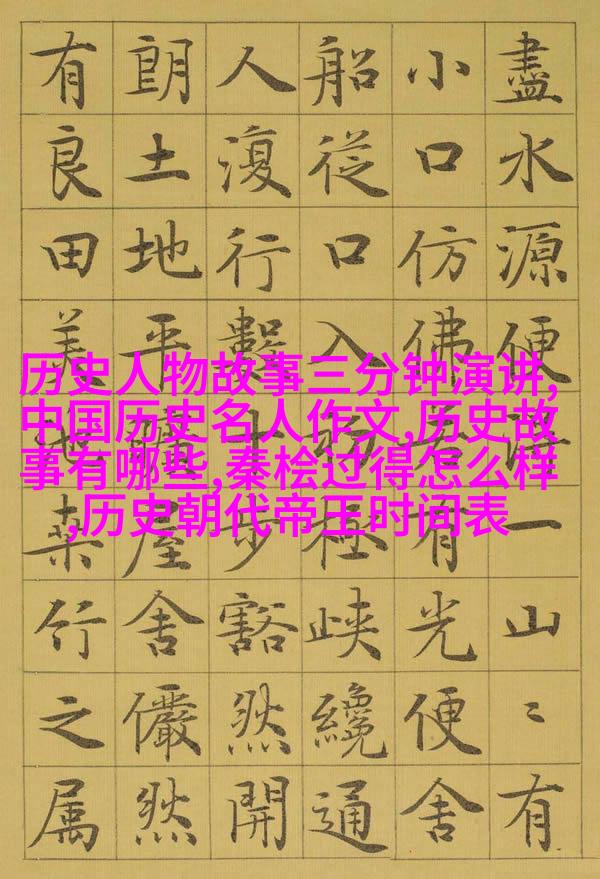 盡水源便得一山〻有
小口仿佛若有光便舍
船從口入初極峽纔通
人復行數十步豁然開
朗土地平曠屋舍儼然
有良田美池桑竹之属
历史人物故事三分钟演讲,
中国历史名人作文,历史故
事有哪些,秦桧过得怎么样
,历史朝代帝王时间表